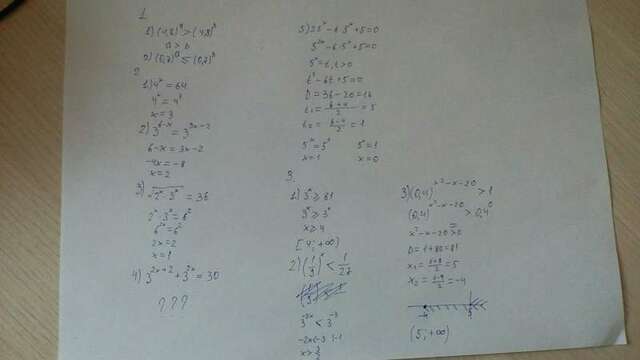 1
1) (4,8)^a > (4,8)^b
a > b
2) (0,7)^a ≤ (0,7)^b
2
1) 4^x = 64
4^x = 4^3
x = 3
2) 3^(6-x) = 3^(3x-2)
6-x = 3x-2
-4x = -8
x = 2
3)
2^x · 3^x = 36
2^x · 3^x = 6^2
2x = 2
x = 1
4) 3^(2x+2) + 3^(2x) = 30
???
5) 25^x - 6·5^x + 5 = 0
5^(2x) - 6·5^x + 5 = 0
5^x = t, t > 0
t^2 - 6t + 5 = 0
D = 36 - 20 = 16
t1 = (6+4)/2 = 5
t2 = (6-4)/2 = 1
5^x = 5^1 5^x = 1
x = 1 x = 0
3.
1) 3^x ≥ 81
3^x ≥ 3^4
x ≥ 4
[4; +∞)
2) (1/3)^x < 1/27
< 3^(-3)
3) (0,4)^(x^2-x-20) > 1
(0,4)^(x^2-x-20) > 0,4^0
x^2 - x - 20 > 0
D = 1 + 80 = 81
x1 = (1+9)/2 = 5
x2 = (1-9)/2 = -4
-4 5
(5; +∞)